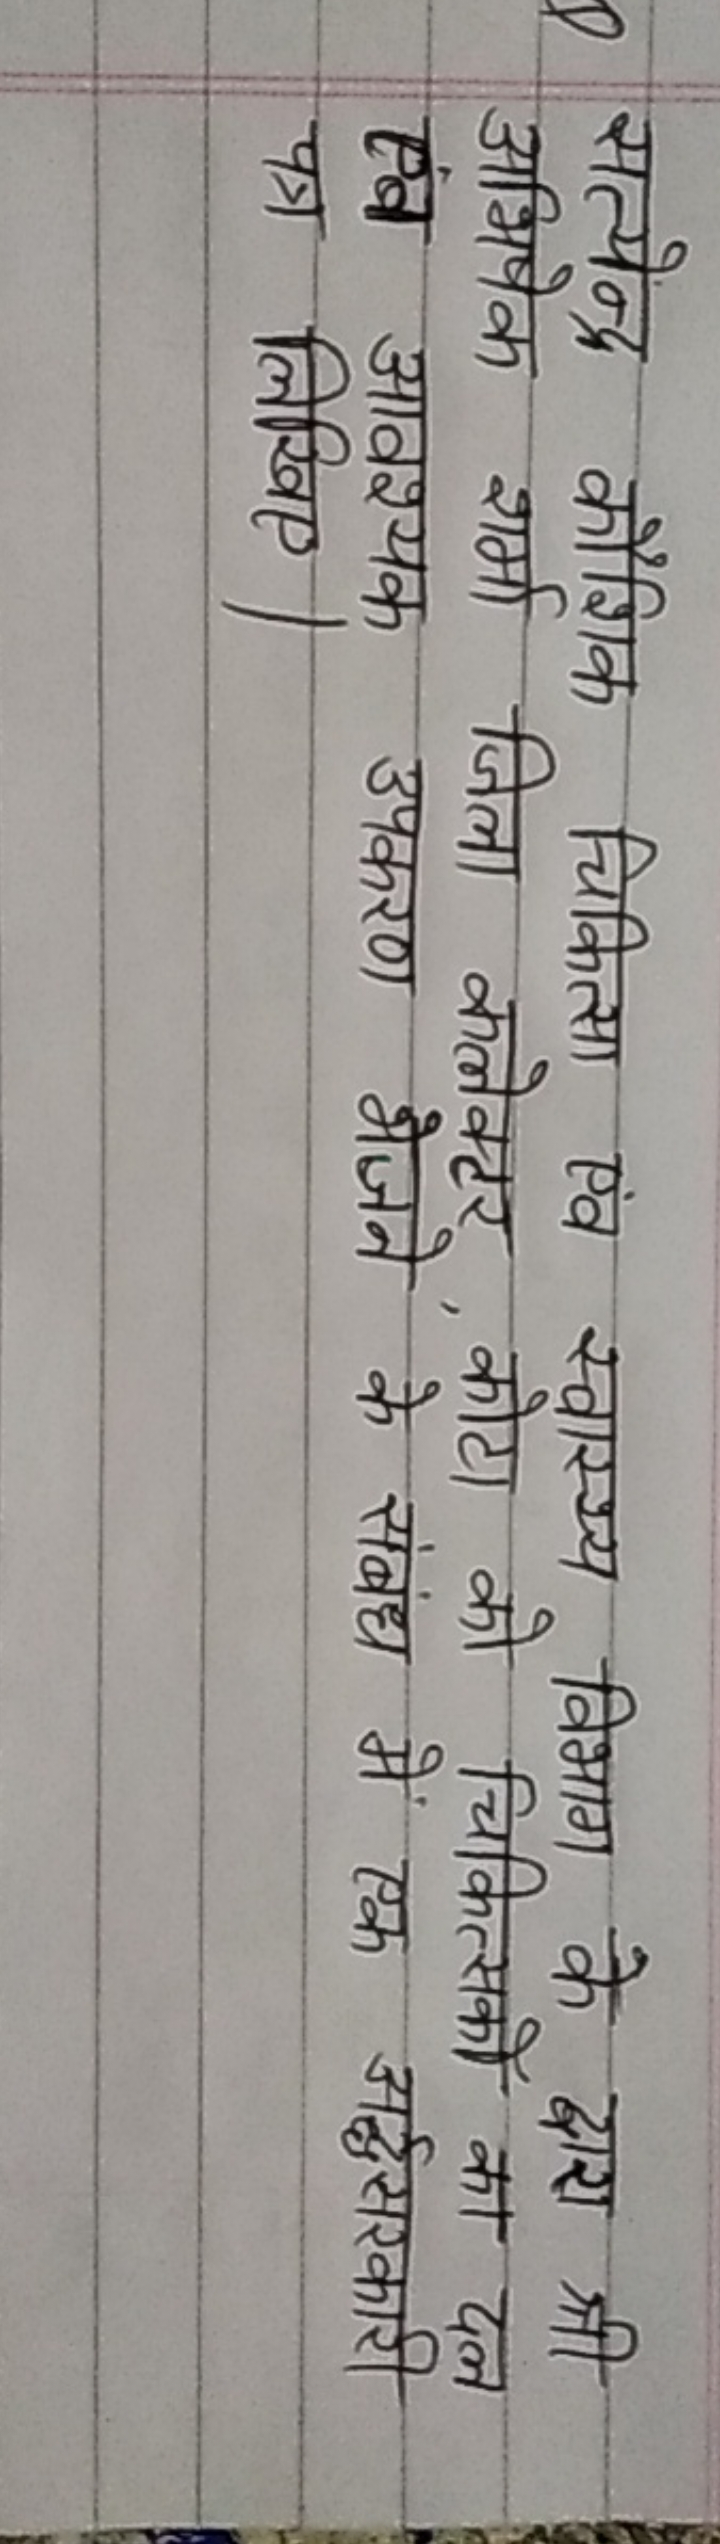 सत्येन्द्र कौशिक चिकित्सा एंव स्वास्थ्य विभाग के द्वारा श्री
अभिषेक शर्मा जिला कलेक्टर, कोटा को चिकित्सकों का दल
एंव आवश्यक उपकरण भेजने के संबंध में एक अर्द्धसरकारी
पत्र लिखिए।